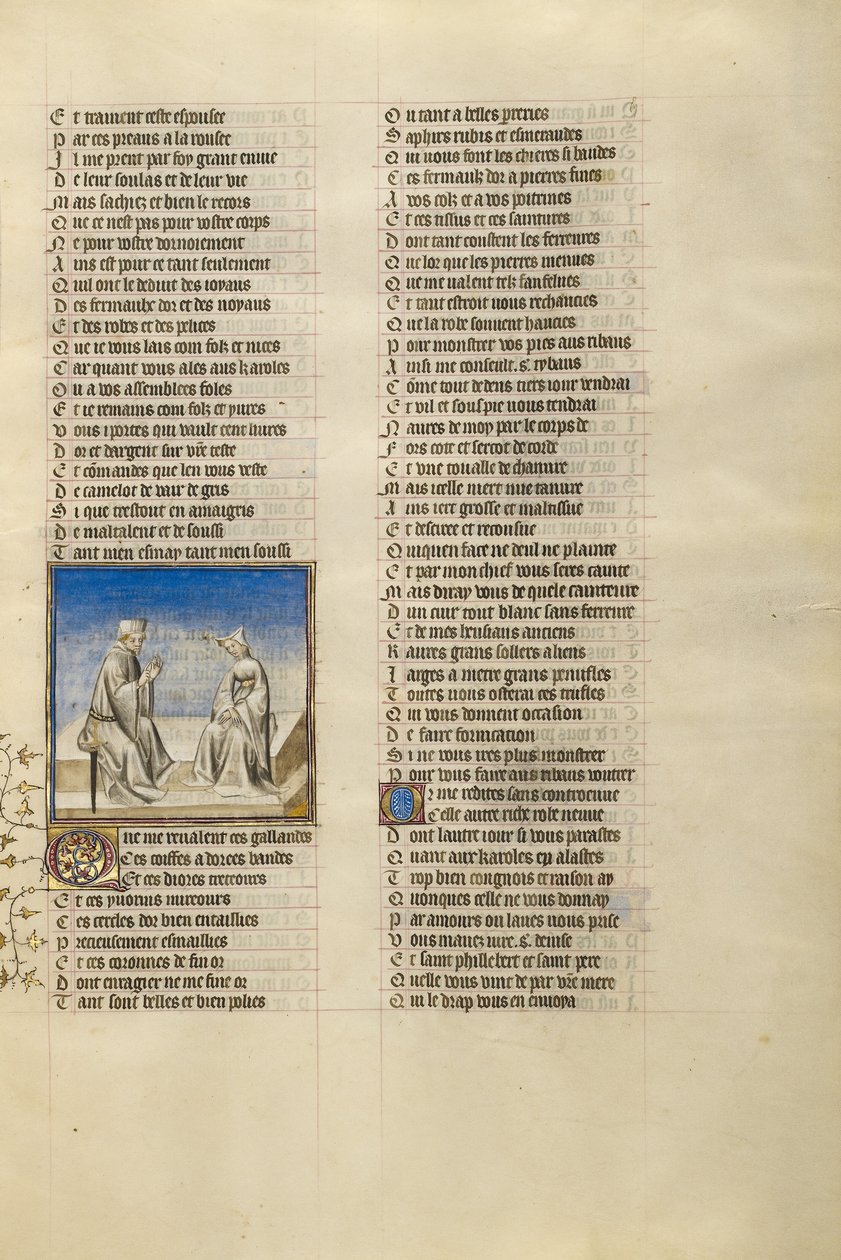 Et trainent ceste espousee
Par ces preaus a la rousee
Il me prent par foy grant enuie
De leur soulas et de leur vie
Mais sachiez et bien le recors
Que ce nest pas pour vostre corps
Ne pour vostre dornoiement
Ains est pour ce tant seulement
Quil ont le deduit des ioyaus
Des fermaulx dor et des noyaus
Et des robes et des pelices
Que ie vous lais com folz et nices
Car quant vous ales aus karoles
Ou a vos assemblees foles
Et ie remains com folz et yures
Vous i portes qui vault cent liures
Dor et dargent sur vr̃e teste
Et cõmandes que len vous veste
De camelot de vair de gris
Si que trestout en amaigris
De maltalent et de soussi
Tant men esmay tant men soussi
Que me reualent ces gallandes
Ces coiffes a dorees bandes
Et ces diores trecoours
Et ces yuorins miroours
Ces cercles dor bien entaillies
Precieusement esmaillies
Et ces coronnes de fin or
Dont enragier ne me fine or
Tant sont belles et bien polies
Ou tant a belles perreries
Saphirs rubis et esmeraudes
Qui uous font les chieres si baudes
Ces fermaulz dor a pierres fines
A vos colz et a vos poitrines
Et ces tissus et ces saintures
Dont tant coustent les ferreures
Que lor que les pierres menues
Que me ualent telz fanfelues
Et tant estroit uous rechaucies
Que la robe souuent haucies
Pour monstrer vos pies aus ribaus
Ainsi me conseult .s. tybaus
Cõme tout dedens tiers iour vendrai
Et vil et souspie uous tendrai
Naures de moy par le corps de
Fors cote et sercot de corde
Et vne touaille de chanure
Mais icelle niert mie tanure
Ains iert grosse et maltissue
Et desciree et recousue
Qui quen face ne deul ne plainte
Et par mon chief vous seres cainte
Mais diray vous de quele cainteure
Dun cuir tout blanc sans ferreure
Et de mes housiaus anciens
Raures grans sollers a liens
Larges a metre grans penufles
Toutes uous osterai ces trufles
Qui vous donnent occasion
De faire fornication
Si ne vous ires plus monstrer
Pour vous faire aus ribaus voutrer
Or me redites sans controeuue
Celle autre riche robe neuue
Dont lautre iour si vous parastes
Quant aux karoles en alastes
Trop bien congnois et raison ay
Quonques celle ne vous donnay
Par amours ou laues uous prise
Vous mauez iure .s. denise
Et saint phillebert et saint pere
Quelle vous vint de par vr̃e mere
Qui le drap vous en enuoya